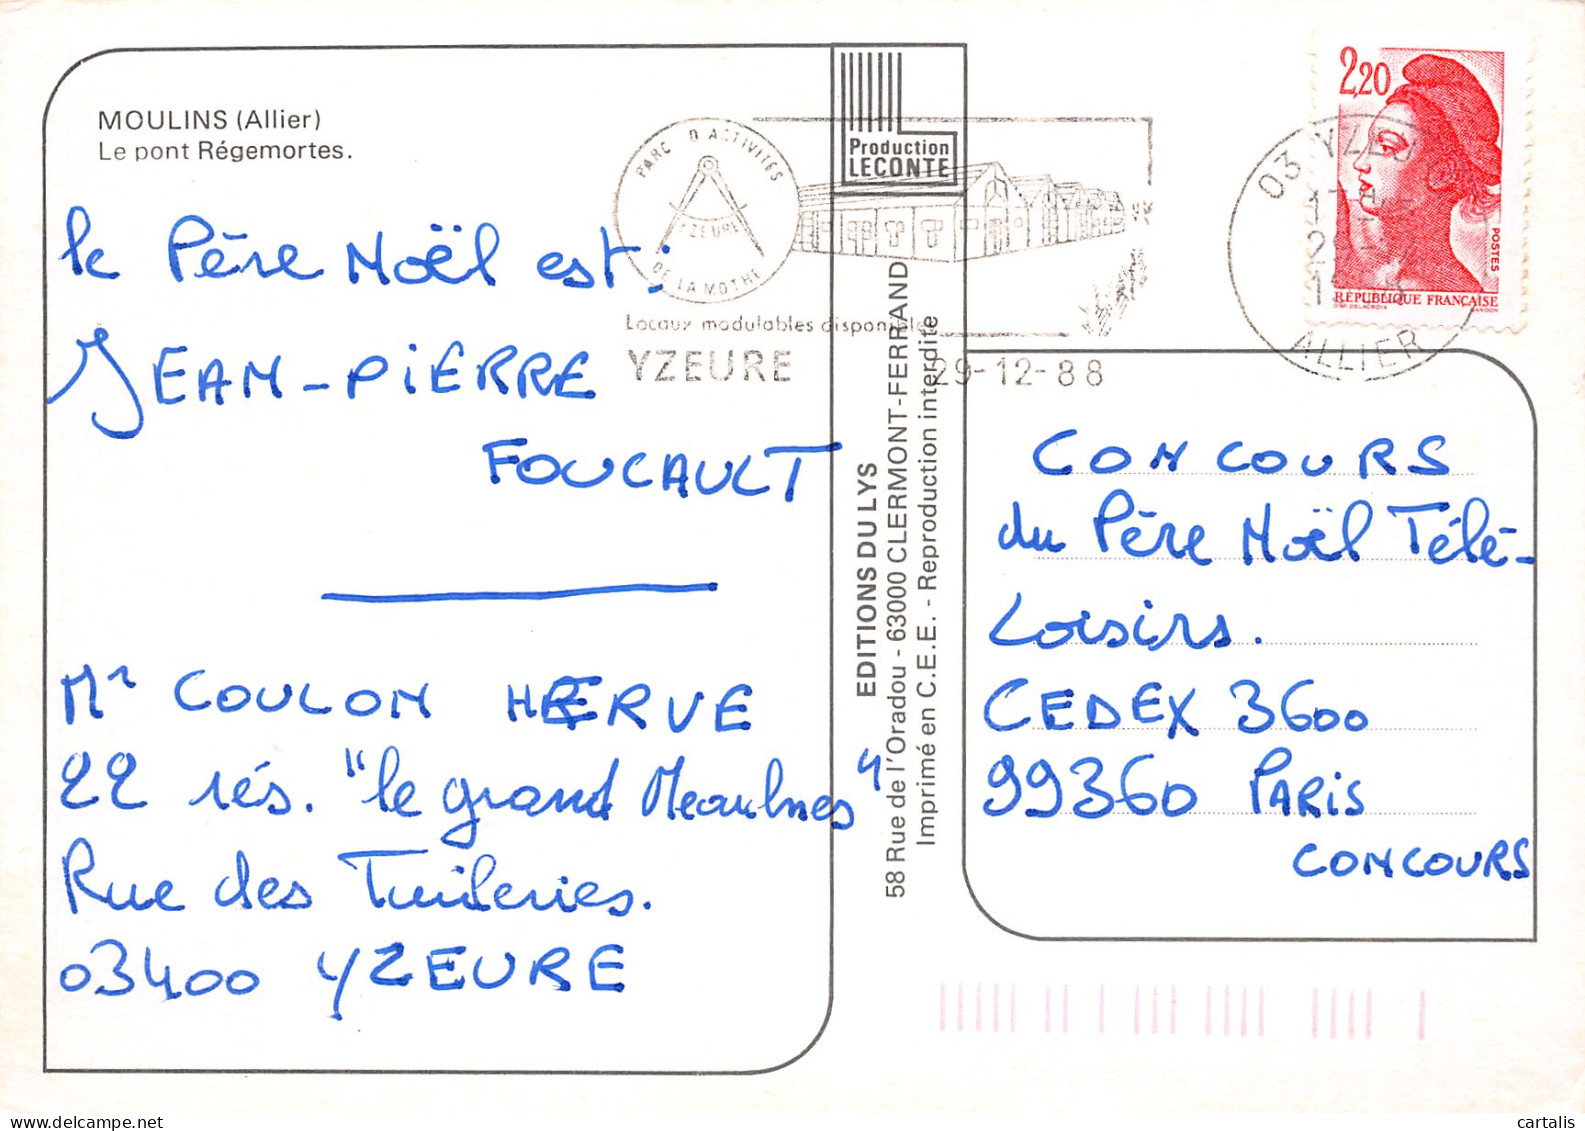 MOULINS (Allier)
Le pont Régemortes.
le Père Noël est:
JEAN-PIERRE
FOUCAULT
Mr COULON HERVE
22 rés. "le grand Meaulnes"
Rue des Tuileries.
03400 YZEURE
PARC D'ACTIVITÉS
YZEURE
DE LA MOTHE
Locaux modulables disponibles
YZEURE
29-12-88
Production
LECONTE
EDITIONS DU LYS
58 Rue de l'Oradou - 63000 CLERMONT-FERRAND
Imprimé en C.E.E. - Reproduction interdite
2,20
POSTES
RÉPUBLIQUE FRANÇAISE
03 YZEU
ALLIER
CONCOURS
du Père Noël Télé-
Loisirs.
CEDEX 3600
99360 PARIS
CONCOURS
cartalis
www.delcampe.net